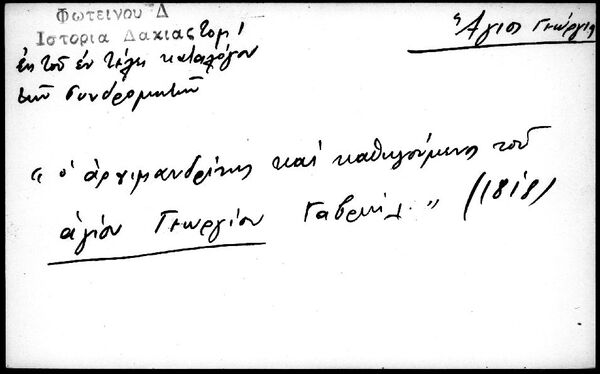 Φωτεινου Δ
Ιστορια Δακιας τομ 1
ἐκ τοῦ ἐν τέλει καταλόγου
τῶν συνδρομητῶν
Ἅγιος Γεώργιος
« ὁ ἀρχιμανδρίτης καὶ καθηγούμενος τοῦ
ἁγίου Γεωργίου Γαβριήλ. » (1818)